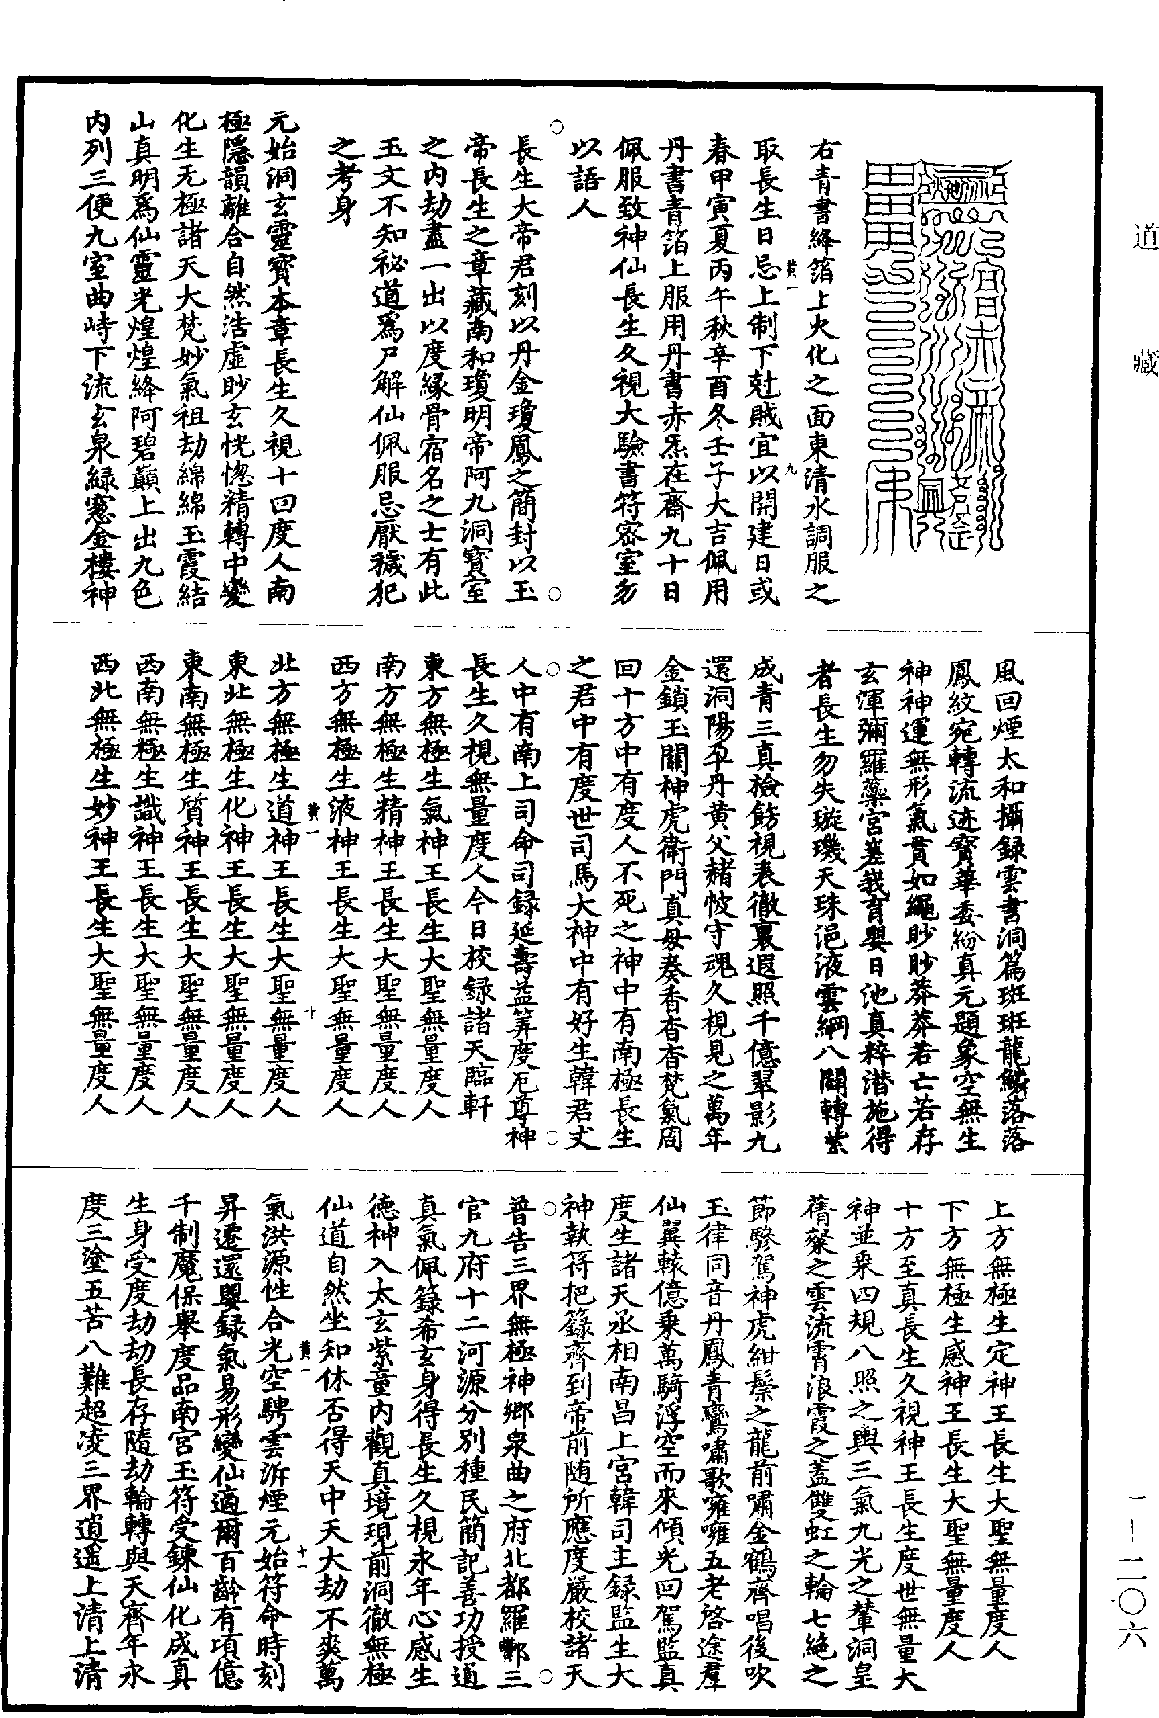 道藏
右青書絳箔上火化之面東清水調服之
取長生日忌上制下尅賊宜以開建日或
春甲寅夏丙午秋辛酉冬壬子大吉佩用
丹書青箔上服用丹書赤炁在齋九十日
佩服致神仙長生久視大驗書符密室勿
以語人
長生大帝君刻以丹金瓊鳳之簡封以玉
帝長生之章藏南和瓊明帝阿九洞寳室
之内劫盡一出以度緣骨宿名之士有此
玉文不知祕道爲尸解仙佩服忌厭穢犯
之考身
元始洞玄靈寳本章長生久視十回度人南
極隱韻離合自然浩虛眇玄恍惚精轉中變
化生无極諸天大梵妙氣祖劫綿綿玉霞結
山真明爲仙靈光煌煌絳阿碧巔上出九色
内列三便九室曲峙下流玄泉緑窻金樓神
風回煙太和攝録雲書洞篇斑斑龍鱗落落
鳳紋宛轉流迹寳華委紛真元題象空無生
神神運無形氣貫如繩眇眇莽莽若亡若存
玄渾彌羅蘂宮蹇我育嬰日池真粹潜施得
者長生勿失璇璣天珠浥液雲綱八關轉紫
成青三真檢飭視表徹裏遐照千億翠影九
還洞陽孕丹黄父赭帔守魂久視見之萬年
金鎖玉關神虎衛門真母奏香杳杳梵氣周
回十方中有度人不死之神中有南極長生
之君中有度世司馬大神中有好生韓君丈
人中有南上司命司録延壽益筭度厄尊神
長生久視無量度人今日校録諸天臨軒
東方無極生氣神王長生大聖無量度人
南方無極生精神王長生大聖無量度人
西方無極生液神王長生大聖無量度人
黄一 十
北方無極生道神王長生大聖無量度人
東北無極生化神王長生大聖無量度人
東南無極生質神王長生大聖無量度人
西南無極生識神王長生大聖無量度人
西北無極生妙神王長生大聖無量度人
上方無極生定神王長生大聖無量度人
下方無極生感神王長生大聖無量度人
十方至真長生久視神王長生度世無量大
神並乘四規八照之輿三氣九光之輦洞皇
蒨粲之雲流霄浪霞之蓋雙虹之輪七絶之
節驂駕神虎紺鬃之龍前嘯金鶴齊唱後吹
玉律同音丹鳳青鸞嘯歌雍雍五老啓途羣
仙翼轅億乘萬騎浮空而來傾光回駕監真
度生諸天丞相南昌上宮韓司主録監生大
神執符把籙齊到帝前随所應度嚴校諸天
普告三界無極神鄉泉曲之府北都羅酆三
官九府十二河源分別種民簡記善功授道
真氣佩籙希玄身得長生久視永年心感生
德神入太玄紫童内觀真境現前洞徹無極
仙道自然坐知休否得天中天大劫不爽萬
黄一 十一
氣洪源性合光空騁雲泝煙元始符命時刻
昇遷還嬰録氣易形變仙適爾百齡有項億
千制魔保舉度品南宮玉符受鍊仙化成真
生身受度劫劫長存隨劫輪轉與天齊年永
度三塗五苦八難超凌三界逍遥上清上清
一—二〇六